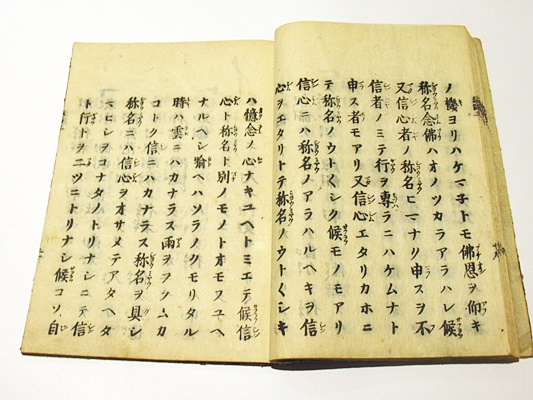 ノ機ヨリハケマ子トモ佛恩ヲ仰キ
称名念佛ハオノツカラアラハレ候
又信心者ノ称名ヒマナリ申スヲ不
信者ノミテ行ヲ専ラニハケムナト
申ス者モアリ又信心エタリカホニ
テ称名ノウトクシク候モノモアリ
信心ニハ称名ノアラハルヘキヲ信
心ヲエタリトテ称名ノウトクシキ
ハ憶念ノ心ナキユヘトミエテ候信
心ト称名ト別ノモノトオモフユヘ
ナルヘシ喩ヘハソラノクモリタル
時ハ雲ニハカナラス雨ヲフクムカ
コトク信ニハカナラス称名ヲ具シ
称名ニハ信心ヲオサメテアタヘタ
マヒシヲコナタノトリナシニテ信
ト行トヲ二ツニトリナシ候コソ自